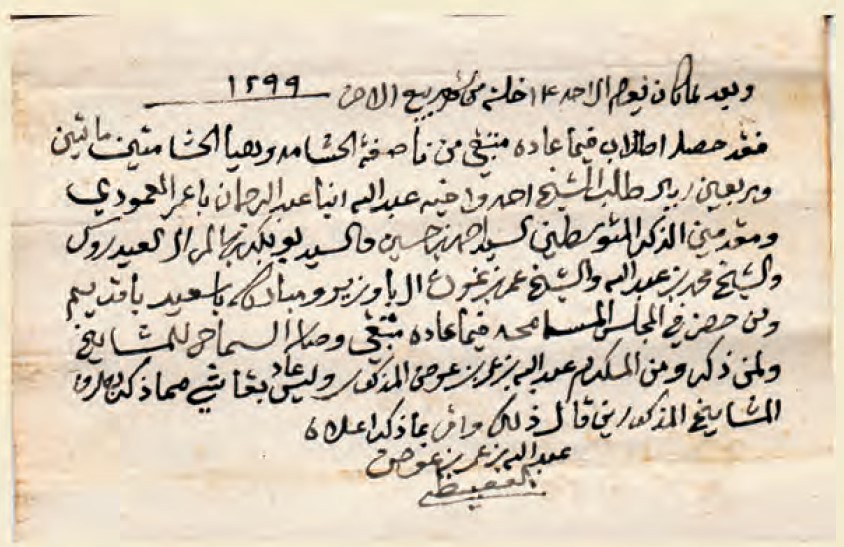 وبعد لما كان يوم الاحد ١٤ خلت من شهر ربيع الاخر ١٢٩٩
فقد حصل الطلاب فيما عاده متبقي من ناصفة الحشامه وبقيا الحشامتين ماتين
وربعين ريال طالب الشيخ احمد واخيه عبدالله ابنا عبدالرحمان باعمر العمودي
ومقدمين الذكر المتوسطين السيد احمد بن حسين والسيد بوبكر بن سالم ال العيدروس
والشيخ محمد بن عبدالله والشيخ عمر بن عوض ال باوزير ومبارك باسعيد باقديم
ومن حضر في المجلس المسامحه فيما عاده متبقي وصار السماح للمشايخ
ولمن ذكر ومن المكرم عبدالله بن عمر بن عوض المذكور وليس عاد بقا شي مما ذكر
المشايخ المذكورين قال ذلك واقر بما ذكر اعلاه
عبدالله بن عمر بن عوض
القعيطي